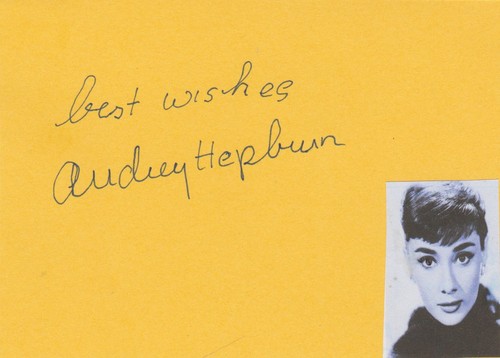 best wishes
Audrey Hepburn